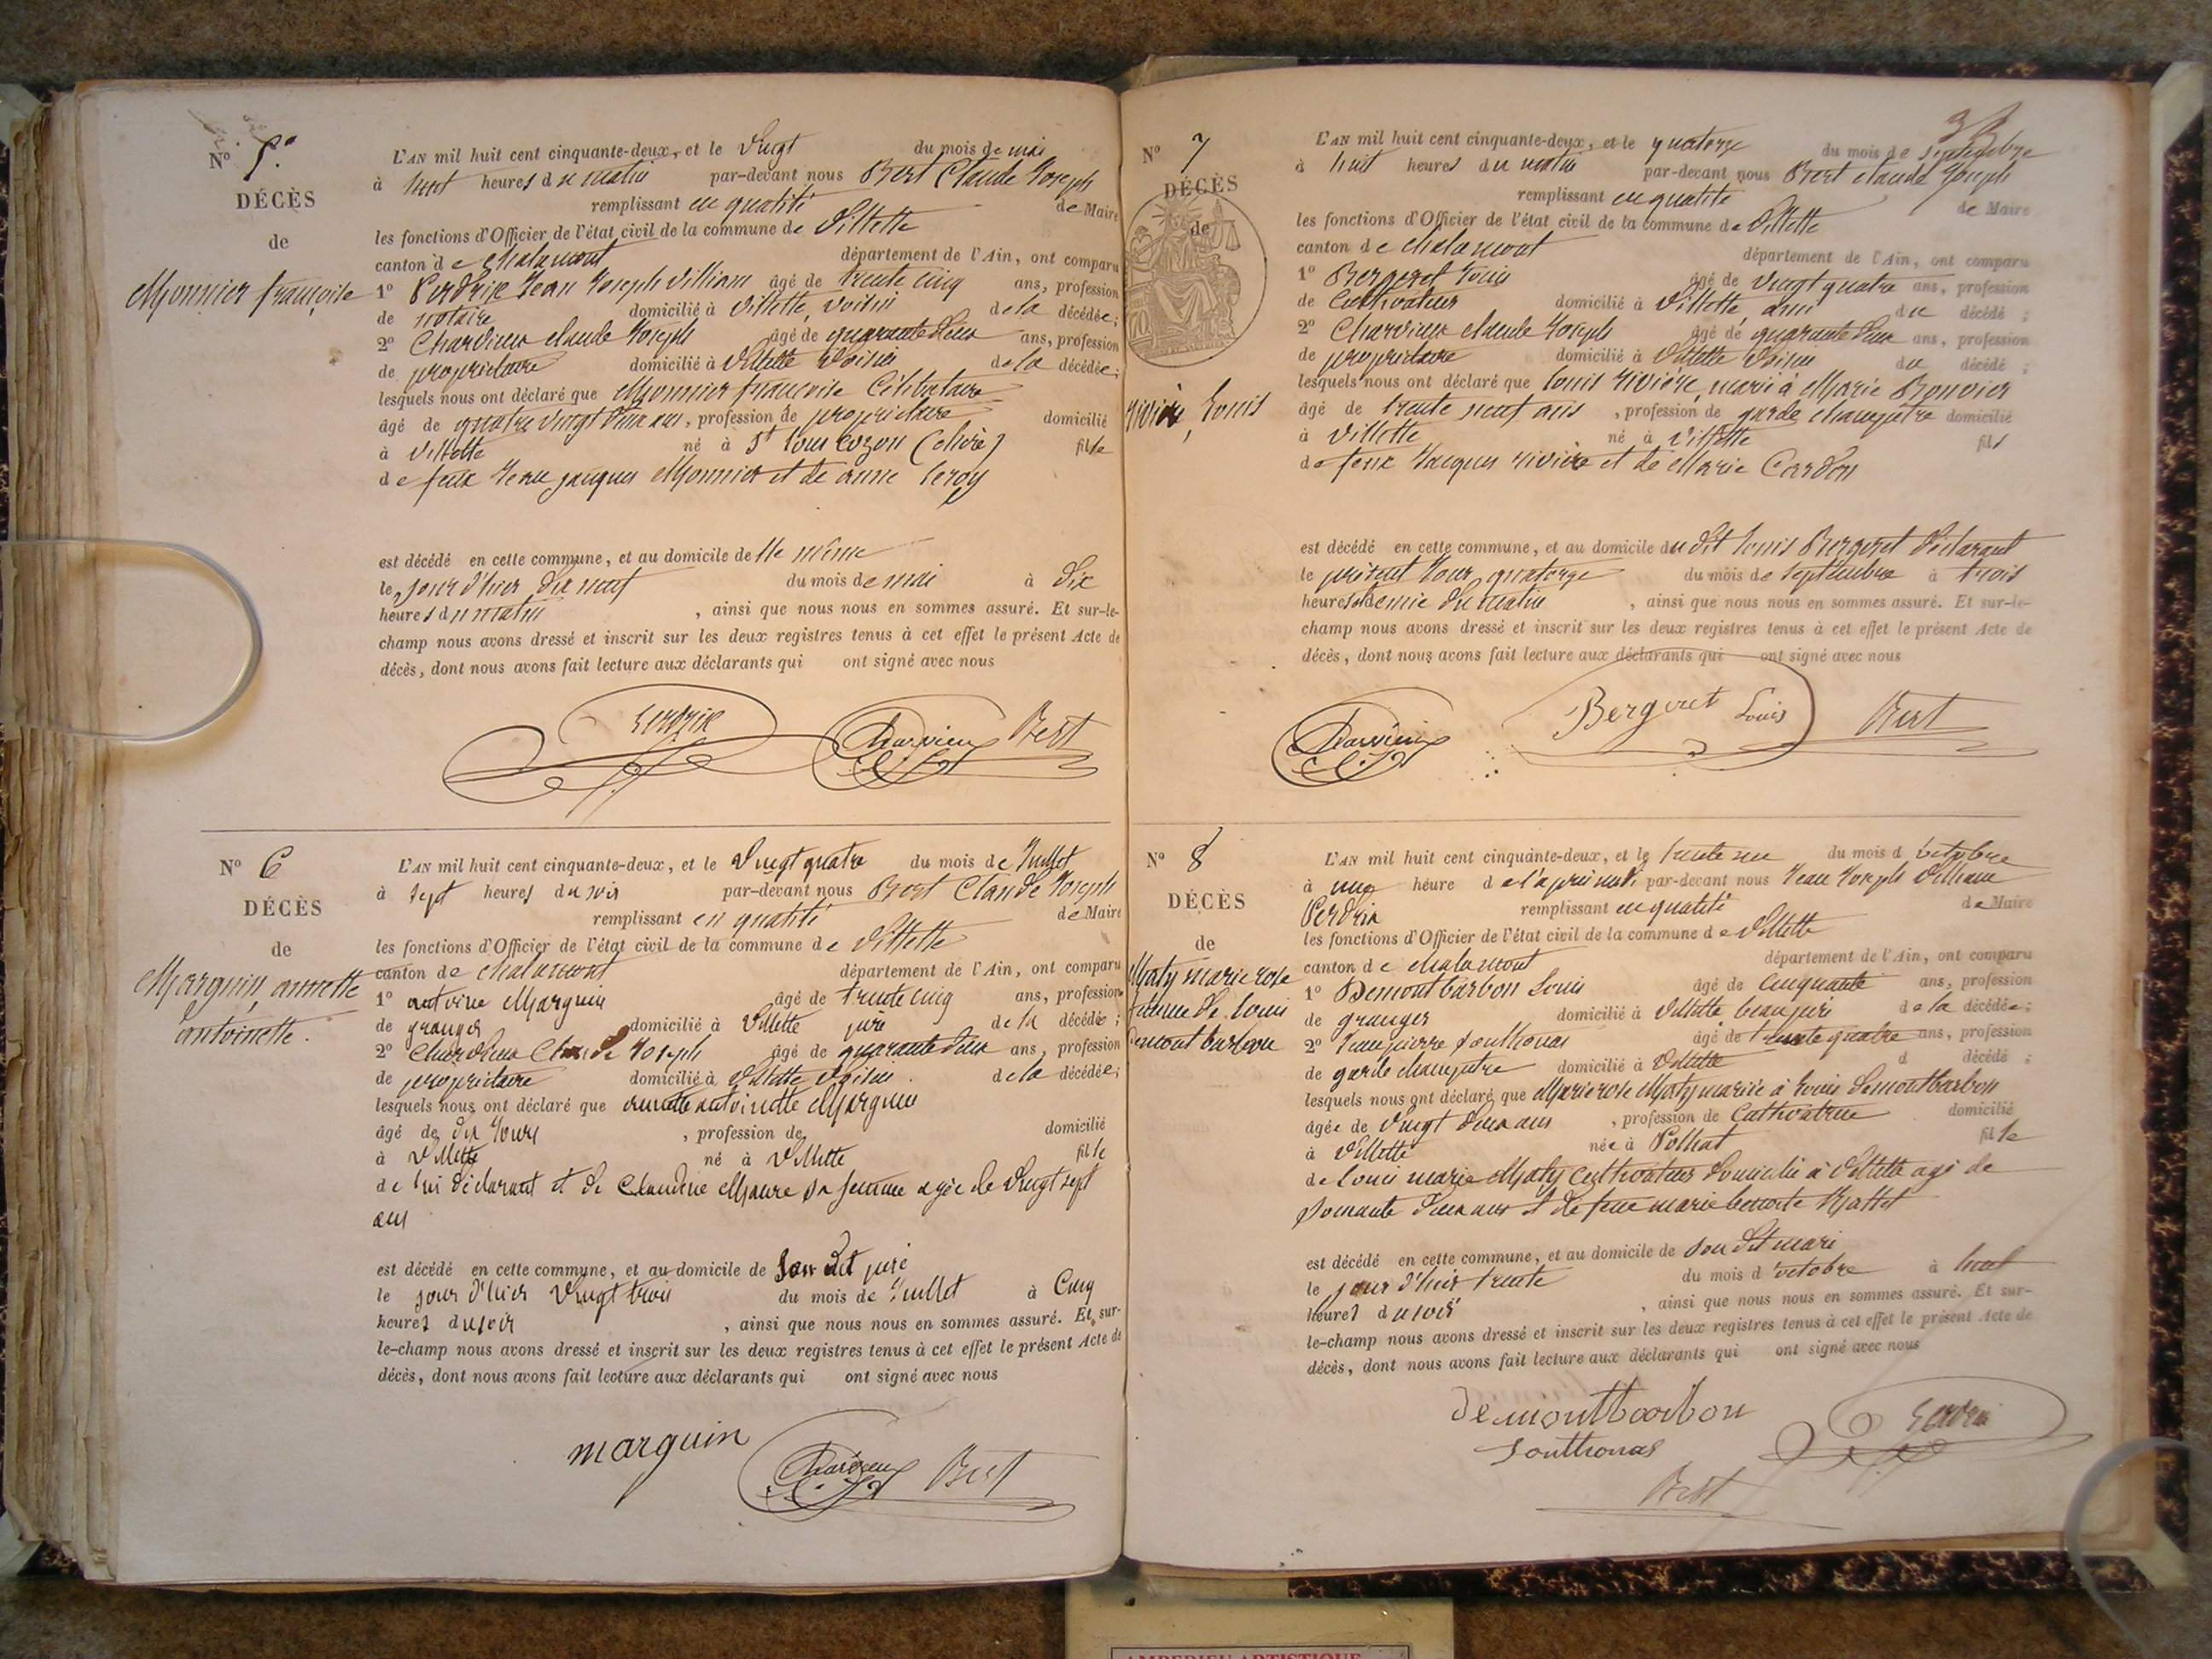 N° 5.
DÉCÈS
de
Monnier françoise
L'AN mil huit cent cinquante-deux, et le vingt du mois de mai
à huit heures du matin par-devant nous Bert Claude Joseph
remplissant en qualité de Maire
les fonctions d'Officier de l'état civil de la commune de Villette
canton de chalamont département de l'Ain, ont comparu
1° Perdrix Jean Joseph William âgé de trente cinq ans, profession
de notaire domicilié à Villette, voisin de la décédée;
2° Charvieux claude Joseph âgé de quarante deux ans, profession
de propriétaire domicilié à Villette voisin de la décédée;
lesquels nous ont déclaré que Monnier françoise Célibataire
âgé de quatre vingt deux ans, profession de propriétaire domicilié
à Villette né à St fille
de feux Jean jacques Monnier et de anne leroy
est décédé en cette commune, et au domicile de elle même
le jour d'hier dix neuf du mois de mai à dix
heures du matin, ainsi que nous nous en sommes assuré. Et sur-le-
champ nous avons dressé et inscrit sur les deux registres tenus à cet effet le présent Acte de
décès, dont nous avons fait lecture aux déclarants qui ont signé avec nous
Perdrix Charvieux Bert
N° 6
DÉCÈS
de
Marguin, annette
antoinette.
L'AN mil huit cent cinquante-deux, et le vingt quatre du mois de Juillet
à sept heures du soir par-devant nous Bert Claude Joseph
remplissant en qualité de Maire
les fonctions d'Officier de l'état civil de la commune de Villette
canton de chalamont département de l'Ain, ont comparu
1° antoine Marguin âgé de trente cinq ans, profession
de granger domicilié à Villette père de la décédée;
2° Charvieux Claude Joseph âgé de quarante deux ans, profession
de propriétaire domicilié à Villette voisin de la décédée;
lesquels nous ont déclaré que annette antoinette Marguin
âgé de dix Jours, profession de domicilié
à Villette né à Villette fille
de lui déclarant et de Claudine Maure sa femme agée de vingt sept
ans
est décédé en cette commune, et au domicile de son dit père
le jour d'hier vingt trois du mois de Juillet à Cinq
heures du soir, ainsi que nous nous en sommes assuré. Et sur-
le-champ nous avons dressé et inscrit sur les deux registres tenus à cet effet le présent Acte de
décès, dont nous avons fait lecture aux déclarants qui ont signé avec nous
marguin Charvieux Bert
N° 7
DÉCÈS
de
rivière, Louis
L'AN mil huit cent cinquante-deux, et le quatorze du mois de septembre
à huit heures du matin par-devant nous Bert claude Joseph
remplissant en qualité de Maire
les fonctions d'Officier de l'état civil de la commune de Villette
canton de chalamont département de l'Ain, ont comparu
1° Bergeret Louis âgé de vingt quatre ans, profession
de Cultivateur domicilié à Villette, ami du décédé;
2° Charvieux claude Joseph âgé de quarante deux ans, profession
de propriétaire domicilié à Villette voisin du décédé;
lesquels nous ont déclaré que Louis rivière, marié à Marie Bonvier
âgé de trente neuf ans, profession de garde champêtre domicilié
à Villette né à Villette fils
de feux Jacques rivière et de Marie Cardon
est décédé en cette commune, et au domicile du dit Louis Bergeret déclarant
le présent Jour quatorze du mois de septembre à trois
heures et demie du matin, ainsi que nous nous en sommes assuré. Et sur-le-
champ nous avons dressé et inscrit sur les deux registres tenus à cet effet le présent Acte de
décès, dont nous avons fait lecture aux déclarants qui ont signé avec nous
Charvieux Bergeret Louis Bert
N° 8
DÉCÈS
de
Maty marie rose
femme de Louis
Demontbarbon
L'AN mil huit cent cinquante-deux, et le trente un du mois d'octobre
à une heure de l'après midi par-devant nous Jean Joseph William
Perdrix remplissant en qualité de Maire
les fonctions d'Officier de l'état civil de la commune de Villette
canton de chalamont département de l'Ain, ont comparu
1° Demontbarbon Louis âgé de Cinquante ans, profession
de granger domicilié à Villette beau père de la décédée;
2° Jean pierre Southonas âgé de trente quatre ans, profession
de garde champêtre domicilié à Villette d décédé;
lesquels nous ont déclaré que Marie rose Maty mariée à Louis demontbarbon
âgée de vingt deux ans, profession de Cultivatrice domicilié
à Villette née à fille
de Louis marie Maty Cultivateur domicilié à Villette agé de
soixante deux ans et de feue marie benoite
est décédé en cette commune, et au domicile de son dit mari
le jour d'hier trente du mois d'octobre à huit
heures du soir, ainsi que nous nous en sommes assuré. Et sur-
le-champ nous avons dressé et inscrit sur les deux registres tenus à cet effet le présent Acte de
décès, dont nous avons fait lecture aux déclarants qui ont signé avec nous
demontbarbon Perdrix
Southonas
Bert
AMBERIEU ARTISTIQUE